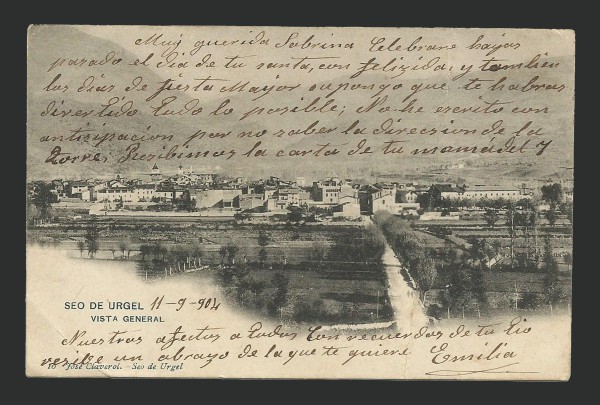 Muy querida Sobrina Celebrare hayas
pasado el dia de tu santa, con felizida, y tambien
los dias de fiesta Mayor supongo que te habras
divertido todo lo posible; No he escrito con
anticipacion por no saber la direccion de la
torre; Recibimos la carta de tu mama del 7
SEO DE URGEL 11-9-904
VISTA GENERAL
Nuestros afectos a todos Con recuerdos de tu tio
recibe un abrazo de la que te quiere Emilia
José Claverol. - Seo de Urgel